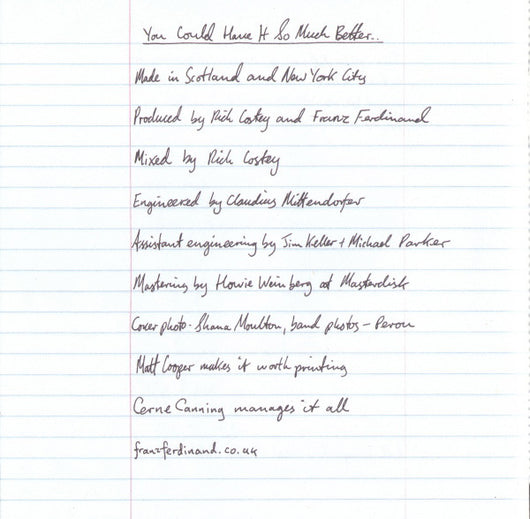 You Could Have It So Much Better..
Made in Scotland and New York City
Produced by Rich Costey and Franz Ferdinand
Mixed by Rich Costey
Engineered by Claudius Mittendorfer
Assistant engineering by Jim Keller + Michael Parker
Mastering by Howie Weinberg at Masterdisk
Cover photo - Shana Moulton, band photos - Perou
Matt Cooper makes it worth printing
Cerne Canning manages it all
franzferdinand.co.uk